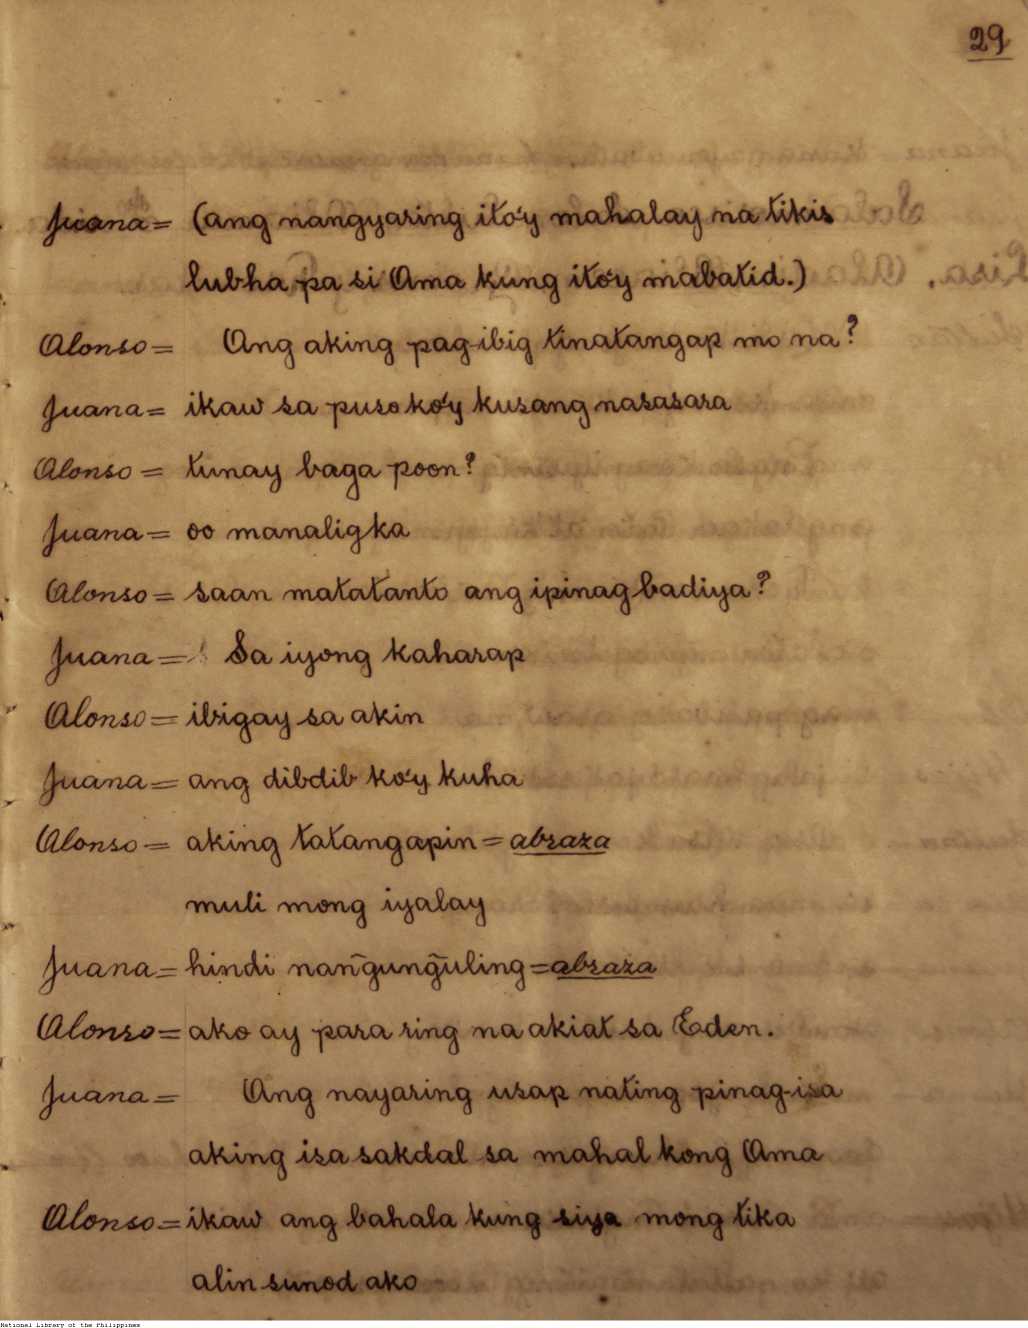 29
Juana = (ang nangyaring ito'y mahalay na tikis
lubha pa si Ama kung ito'y mabatid.)
Alonso = Ang aking pag-ibig tinatangap mo na?
Juana = ikaw sa puso ko'y kusang nasasara
Alonso = tunay baga poon?
Juana = oo manaligka
Alonso = saan matatanto ang ipinagbadiya?
Juana = Sa iyong kaharap
Alonso = ibigay sa akin
Juana = ang dibdib ko'y kuha
Alonso = aking tatangapin = abraza
muli mong iyalay
Juana = hindi nang̃ung̃uling = abraza
Alonso = ako ay para ring na akiat sa Eden.
Juana = Ang nayaring usap nating pinag-isa
aking isa sakdal sa mahal kong Ama
Alonso = ikaw ang bahala kung siya mong tika
alin sunod ako
National Library of the Philippines